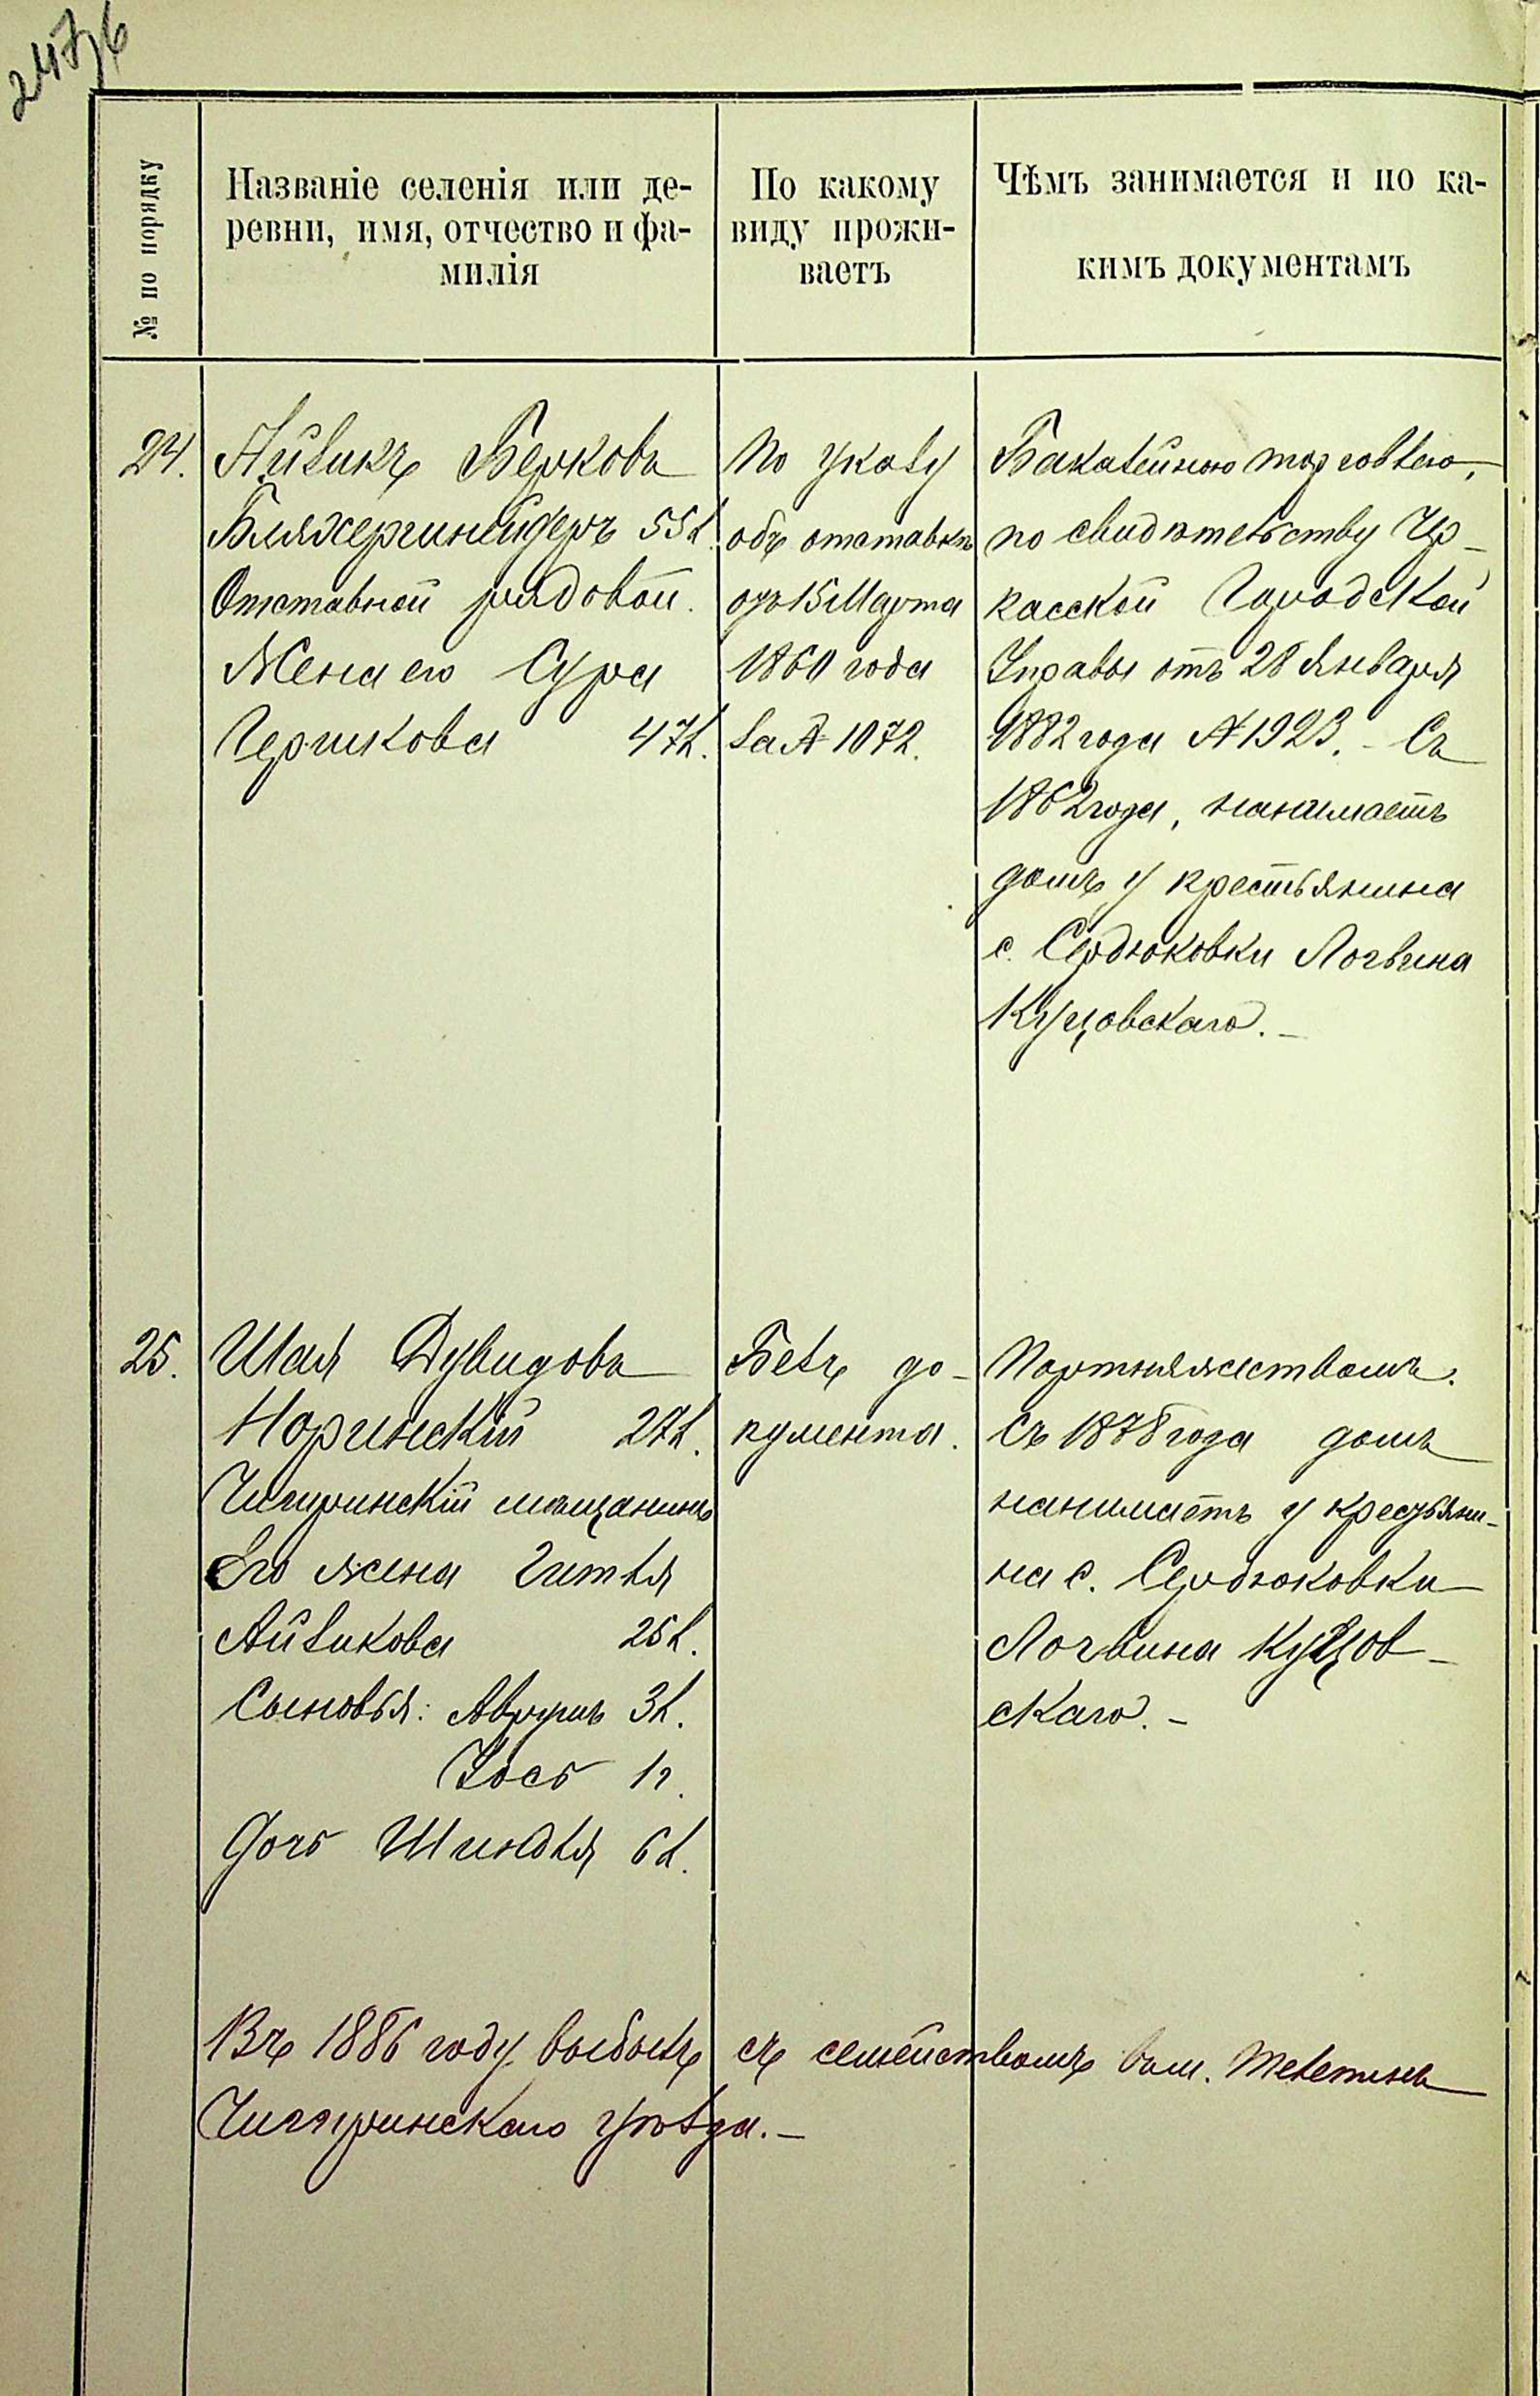 247/6
№ по порядку
Названіе селенія или де-
ревни, имя, отчество и фа-
милія
По какому
виду прожи-
ваетъ
Чѣмъ занимается и по ка-
кимъ документамъ
24.
Айзикъ Берковъ
Бляхергинейдеръ 55 л.
Отставной рядовой.
Жена его Сура
Гершкова 47 л.
По указу
объ отставкѣ
отъ 15 Марта
1860 года
за № 1072.
Бакалейною торговлею,
по свидѣтельству Чер-
касской Городской
Управы отъ 28 Января
1882 года № 1923. - Съ
1862 года, нанимаетъ
домъ у крестьянина
с. Сердюковки Логвина
Куцовскаго. -
25.
Шая Дувидовъ
Норинскій 27 л.
Чигиринскій мѣщанинъ
Его жена Гитля
Айзикова 25 л.
Сыновья: Аврумъ 3 л.
Іось 1 г.
Дочь Шиндля 6 л.
Безъ до-
кумента.
Портняжествомъ.
Съ 1878 года домъ
нанимаетъ у крестьяни-
на с. Сердюковки
Логвина Куцов-
скаго. -
Въ 1886 году выбылъ съ семействомъ въ м. Телепинъ
Чигиринскаго уѣзда. -